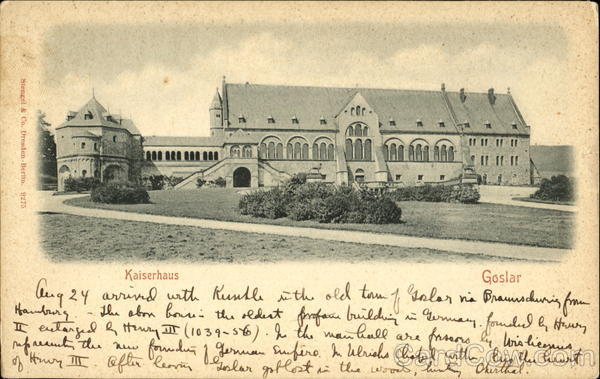 Stengel & Co. Dresden-Berlin. 9275
Kaiserhaus
Goslar
Aug 24 arrived with Kunkle in the old town of Goslar via Braunschweig from
Hamburg - The above house is the oldest profane building in Germany. founded by Henry
II enlarged by Henry III (1039-56). In the main hall are frescos by Wislicenus
represents the new founding of German Empire. In Ulrichs Chapel with the heart
of Henry III After leaving Goslar got lost in the woods,
CardCow.com